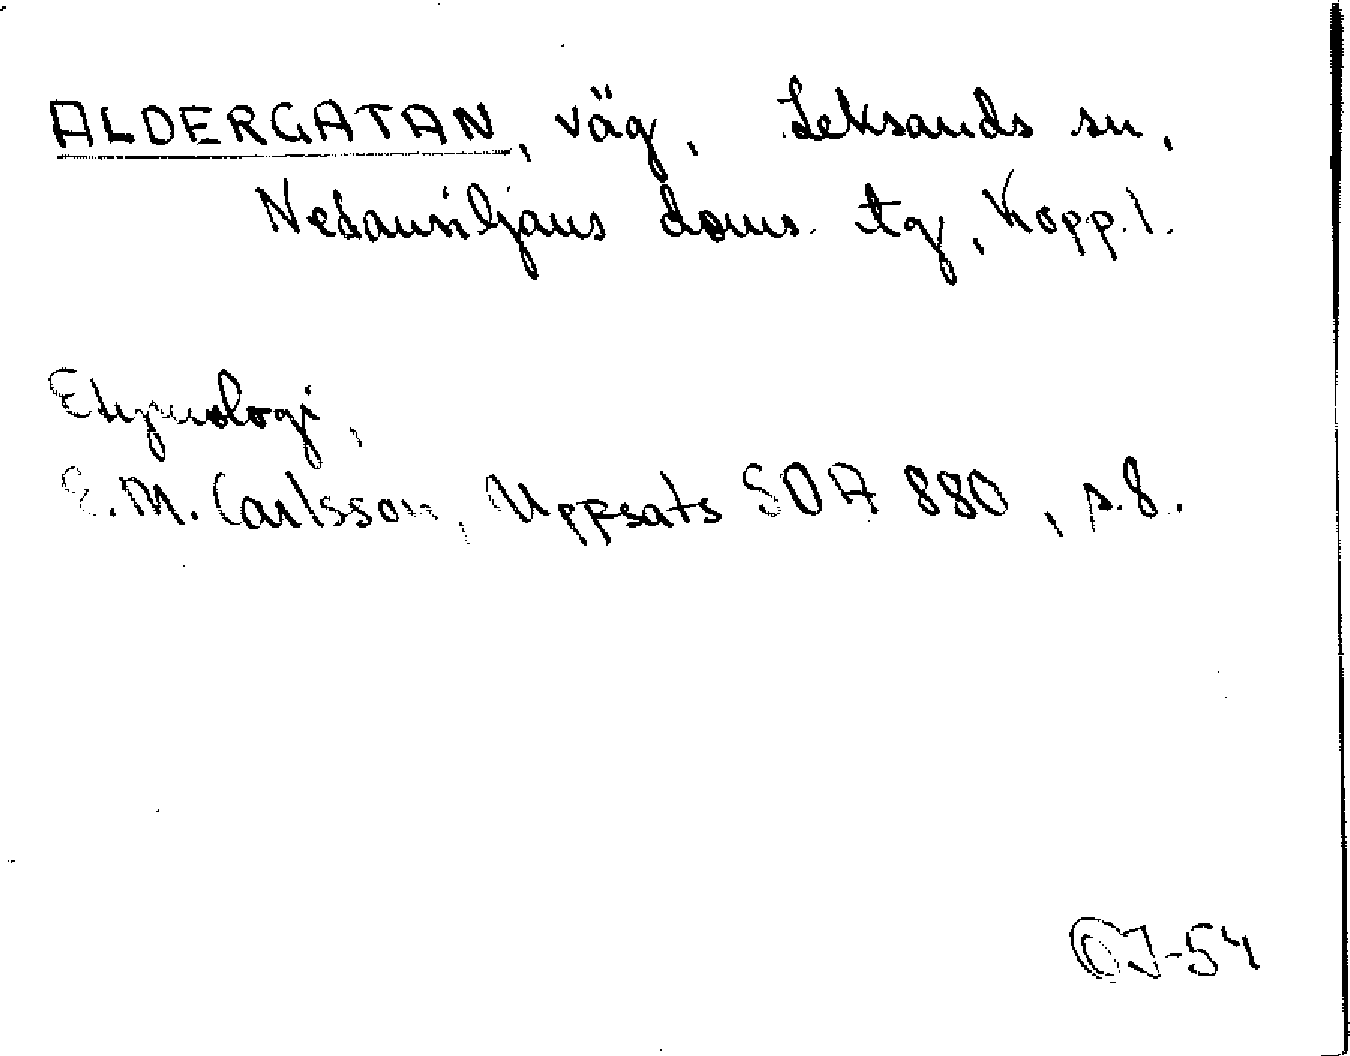 ALDERGATAN, väg, Leksands sn,
Nedansiljans doms. tg, Kopp. l.
Etymologi,
E. M. Carlsson, Uppsats SOA 880, s. 8.
OJ-54